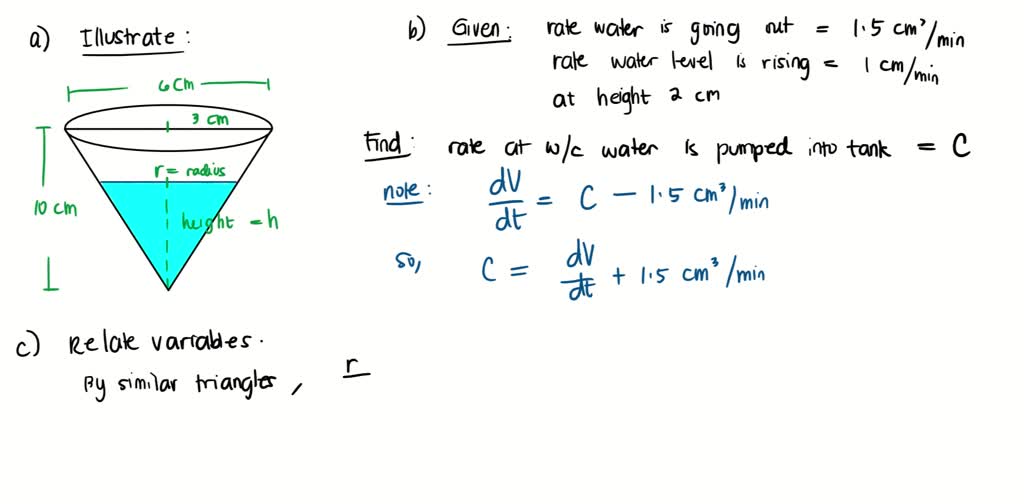 a) Illustrate:
6 cm
3 cm
r = radius
10 cm
height = h
b) Given: rate water is going out = 1.5 cm³/min
rate water level is rising = 1 cm/min
at height 2 cm
Find: rate at w/c water is pumped into tank = C
note: dV/dt = C − 1.5 cm³/min
so, C = dV/dt + 1.5 cm³/min
c) Relate variables.
By similar triangles, r